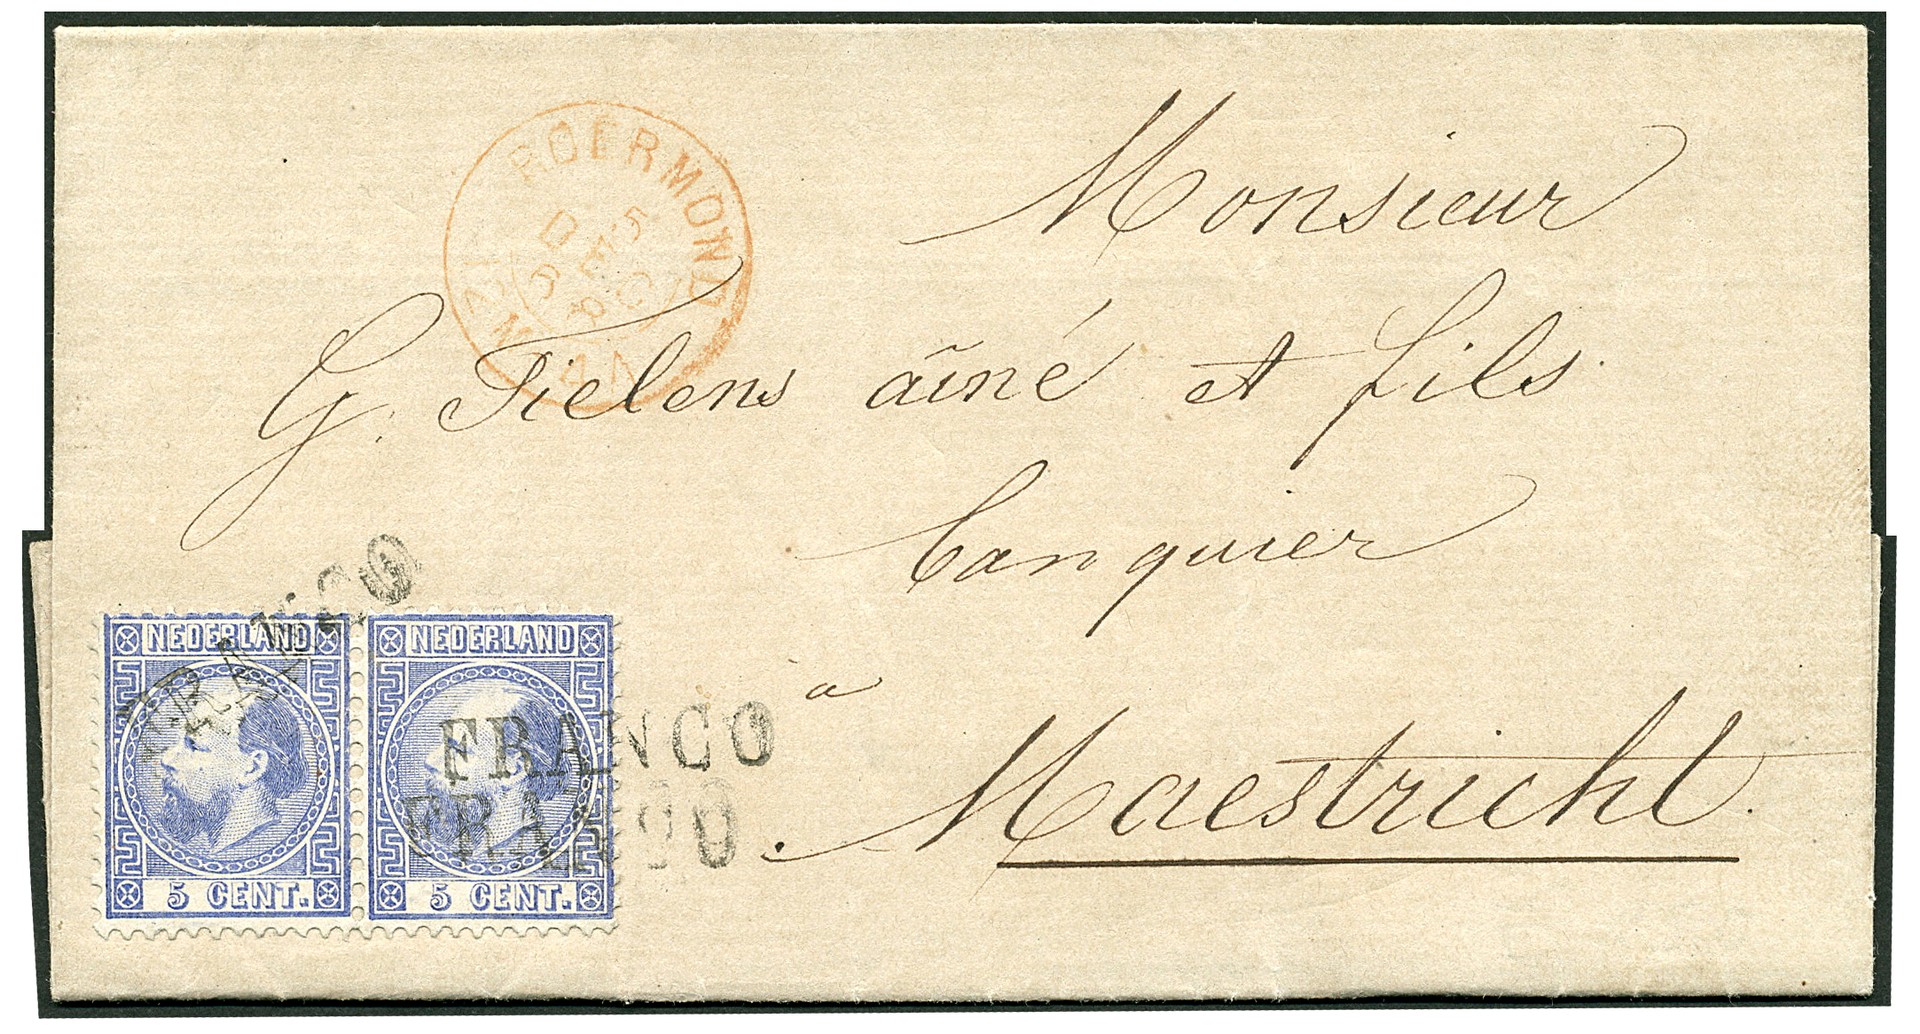 ROERMOND
Monsieur
G. Tielens aîné et fils.
banquier
à
Maestricht.
FRANCO
NEDERLAND NEDERLAND
FRANCO
FRANCO
5 CENT. 5 CENT.